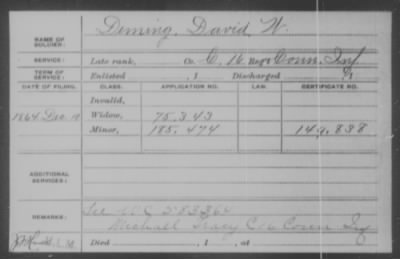 Deming, David W.
NAME OF SOLDIER:
SERVICE: Late rank, Co. C, 16 Reg't Conn. Inf.
TERM OF SERVICE: Enlisted , 1 Discharged , 1
DATE OF FILING. CLASS. APPLICATION NO. LAW. CERTIFICATE NO.
Invalid,
1864 Dec. Widow, 75.343
Minor, 185.474 149.838
ADDITIONAL SERVICES:
REMARKS: See WC 583364
Michael Tracy C 16 Conn Inf
Died , 1 , at